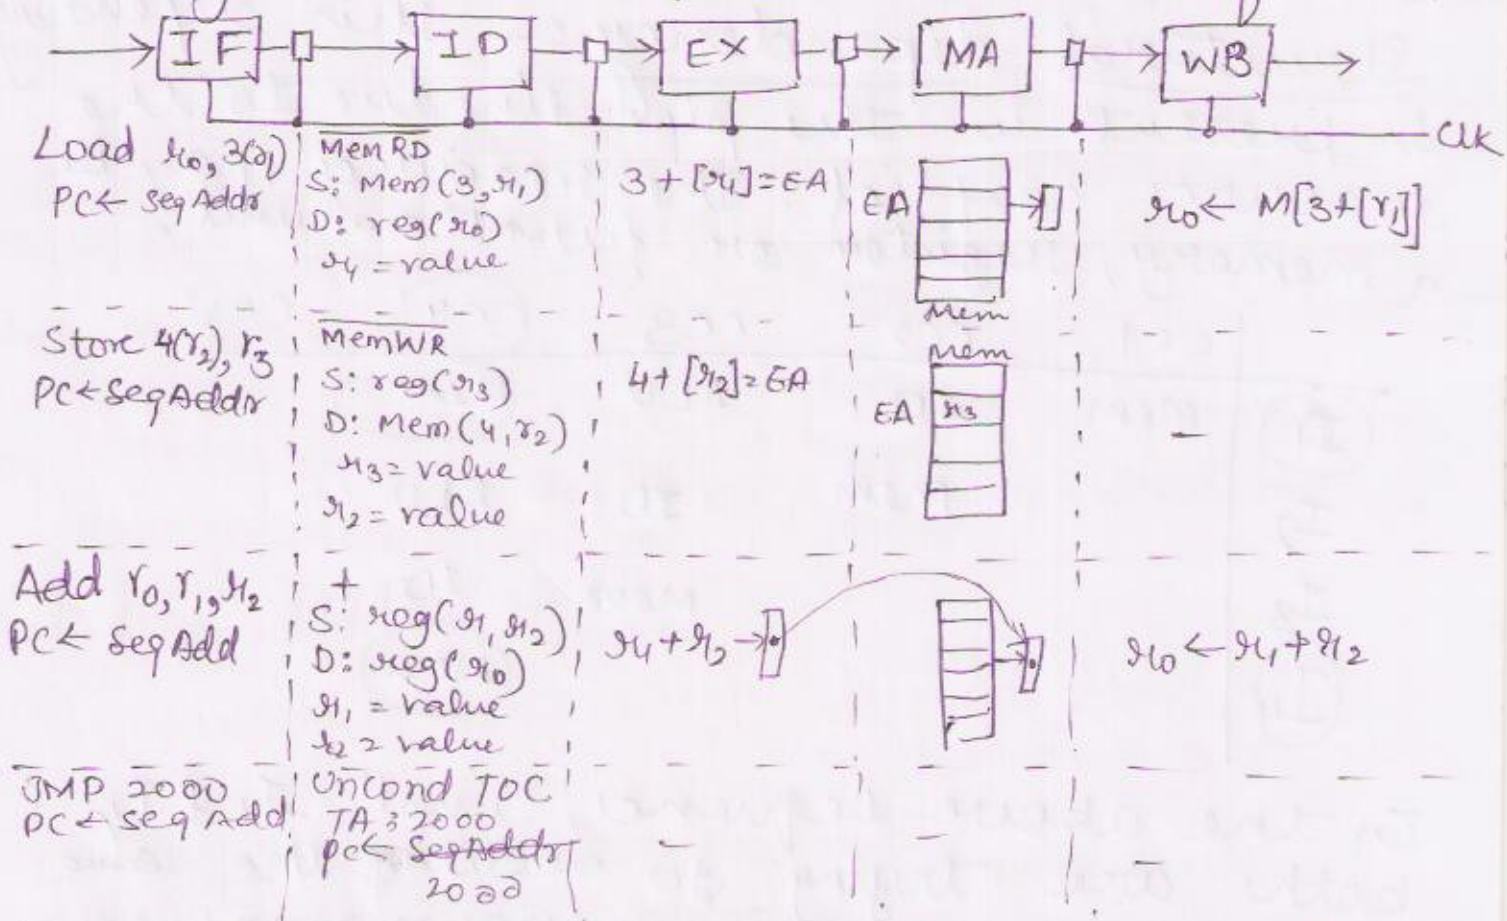 IF ID EX MA WB
Clk
Load r0, 3(r1)
PC ← SeqAddr
MemRD
S: Mem(3, r1)
D: reg(r0)
r1 = value
3 + [r1] = EA
EA
Mem
r0 ← M[3+[r1]]
Store 4(r2), r3
PC ← SeqAddr
MemWR
S: reg(r3)
D: Mem(4, r2)
r3 = value
r2 = value
4 + [r2] = EA
Mem
EA r3
-
Add r0, r1, r2
PC ← SeqAdd
+
S: reg(r1, r2)
D: reg(r0)
r1 = value
r2 = value
r1 + r2 →
r0 ← r1 + r2
JMP 2000
PC ← SeqAdd
Uncond TOC
TA : 2000
PC ← SeqAddr
2000
- - -